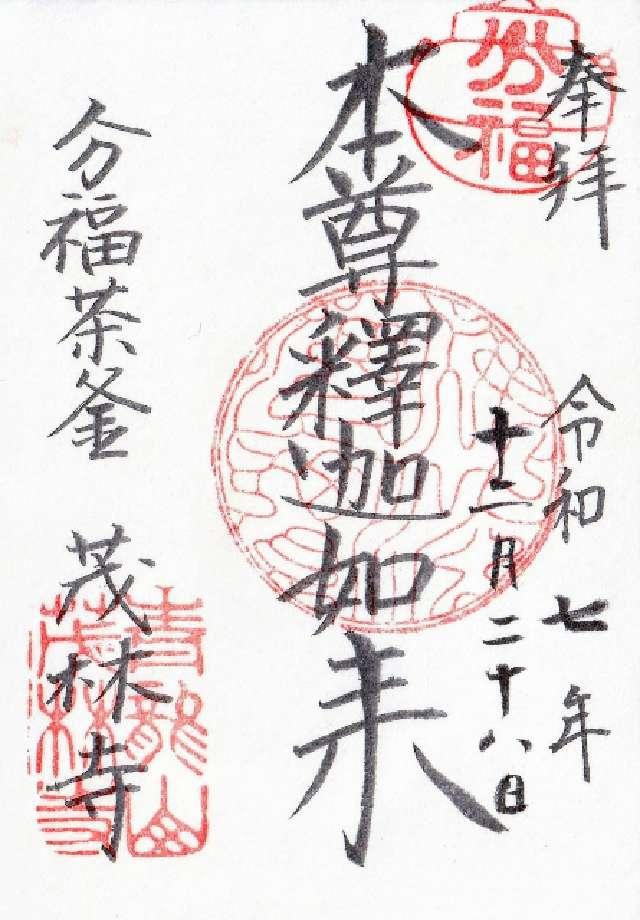 奉拝
令和七年
十二月二十八日
本尊釋迦如来
分福茶釜 茂林寺
分福
青龍山
茂林寺